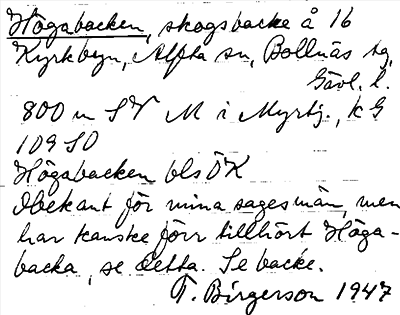 Högabacken, skogsbacke å 16
Kyrkbyn, Alfta sn, Bollnäs tg,
Gävl. l.
800 m SV M i Myrtj., k G
109 SO
Högabacken bls ÖK
Obekant för mina sagesmän, men
har kanske förr tillhört Höga-
backa, se detta. Se backe.
T. Birgerson 1947